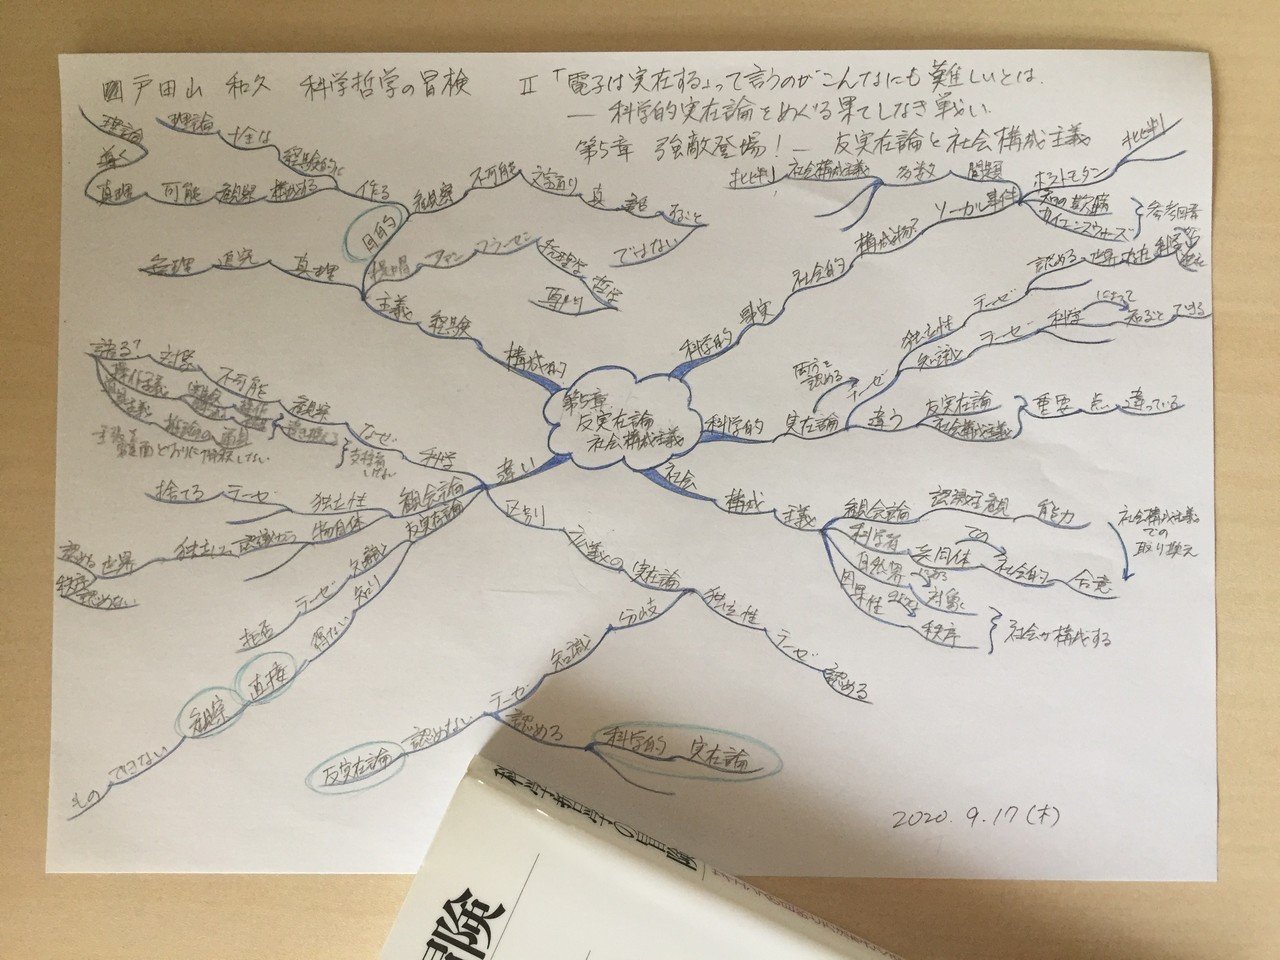 戸田山 和久 科学哲学の冒険 Ⅱ 「電子は実在する」って言うのがこんなにも難しいとは
— 科学的実在論をめぐる果てしなき戦い
第5章 強敵登場! — 反実在論と社会構成主義
第5章
反実在論
社会構成主義
構成的 経験 主義
目的
作る
経験的に 十全な 理論
構成する 観察 可能 真理
理論 導く
観察 不可能 文字通り 真
ではない
提唱 ファン フラーセン 物理学 哲学
専門
真理 追究 合理
科学的 事実 社会的 構成物
ソーカル事件
問題 多数 社会構成主義 批判
ポストモダン 批判
知の欺瞞
サイエンスウォーズ
参考図書
科学的 実在論 テーゼ
両方を
認める
独立性 テーゼ 認める 世界
知識 テーゼ 科学 によって 知ること できる
違う 反実在論
社会構成主義
重要 点 違っている
社会 構成 主義
観念論 認識主観 能力
科学者 共同体 での 社会的 合意
自然界 対象
因果性 秩序
社会が構成する
社会構成主義
での
取り換え
違い
科学
なぜ
支持者
観察 不可能 対象 語る?
推論の 道具
字面どおりに解釈しない
観念論 独立性 テーゼ 捨てる
物自体 認識から 独立 世界 認める
秩序 認めない
反実在論 知識 テーゼ 拒否
知り 得ない 直接 観察 できない もの
区別 広義の 実在論
独立性 テーゼ 認める
分岐 知識 テーゼ
認めない 反実在論
認める 科学的 実在論
2020.9.17(木)
科学哲学の冒険
冒険